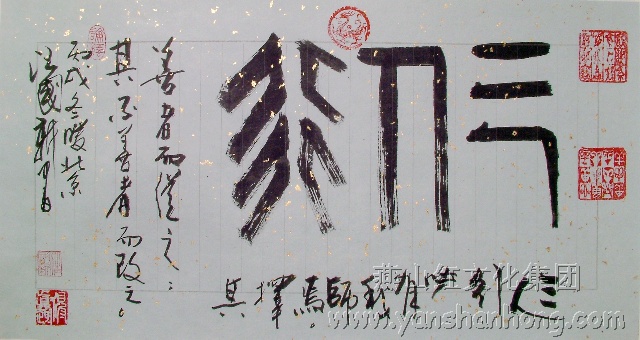 三人行
必有我師焉。擇其
善者而從之；
其不善者而改之。
丙戌冬暖北京
汪國新書
燕山红文化集团
www.yanshanhong.com